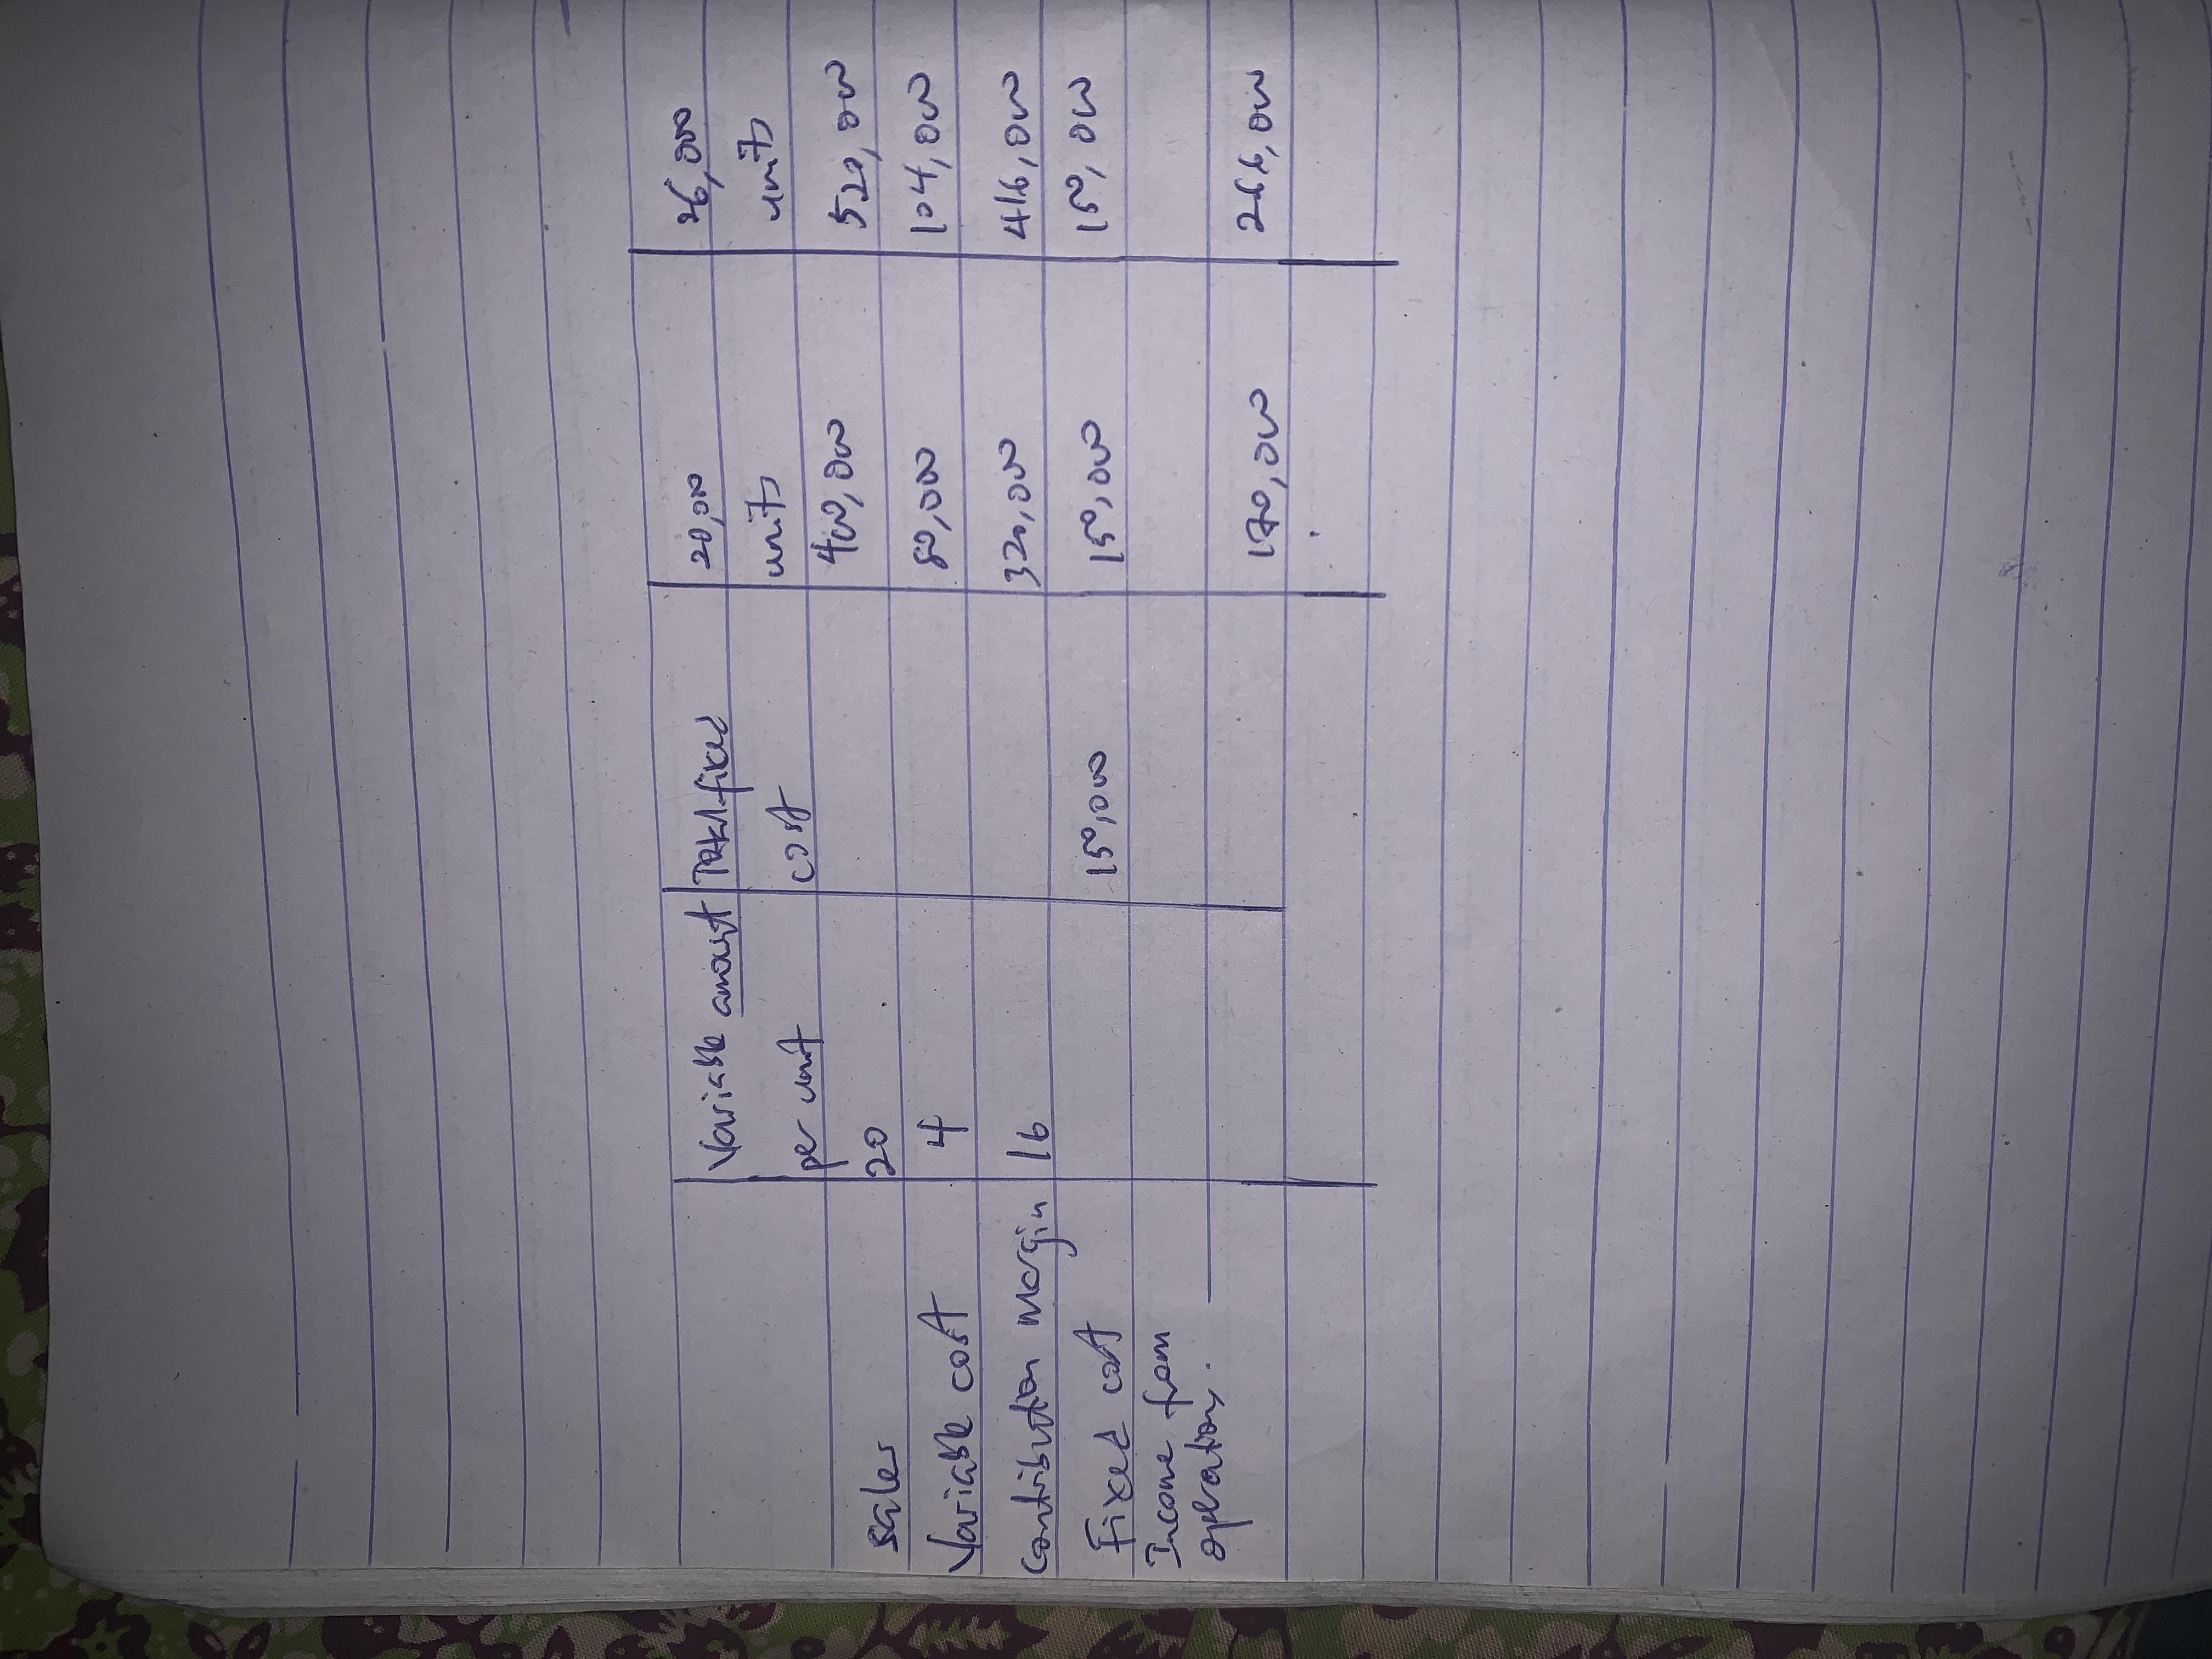 Variable amount Total fixed 20,000 26,000
per unit cost units units
sales 20 400,000 520,000
Variable cost 4 80,000 104,000
contribution margin 16 320,000 416,000
Fixed cost 150,000 150,000 150,000
Income from
operations. 170,000 266,000